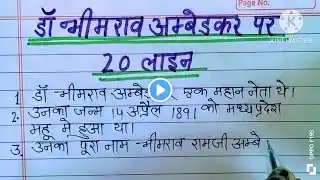 Page No.
डॉ भीमराव अम्बेडकर पर
20 लाइन
1. डॉ भीमराव अम्बेड एक महान नेता थे।
2. उनका जन्म 14 अप्रैल 1891 को मध्यप्रदेश
महू मे हुआ था।
3. उनका पूरा नाम भीमराव रामजी अम्बे
KINEMASTER
OPPO